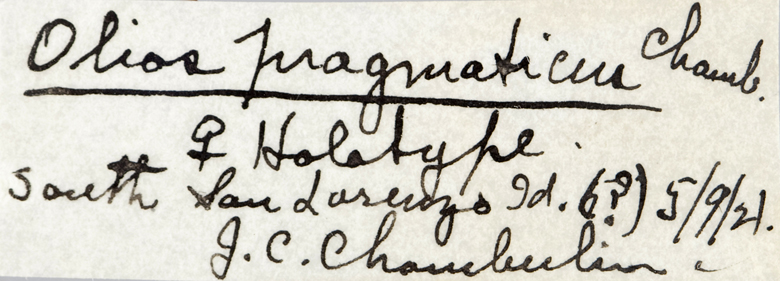 Olios pragmaticus Chamb.
♀ Holotype.
South San Lorenzo Id. (♀?) 5/9/21.
J. C. Chamberlin